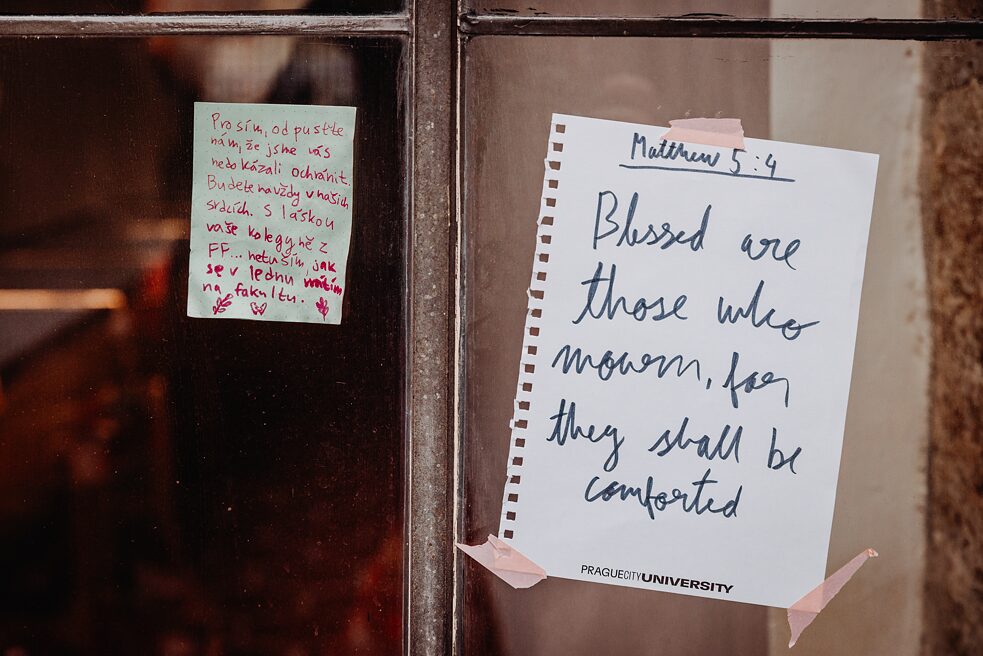 Prosím, odpusťte
nám, že jsme vás
nedokázali ochránit.
Budete navždy v našich
srdcích. S láskou
vaše kolegyně z
FF... netuším, jak
se v lednu vrátím
na fakultu.
Matthew 5:4
Blessed are
those who
mourn, for
they shall be
comforted
PRAGUECITYUNIVERSITY